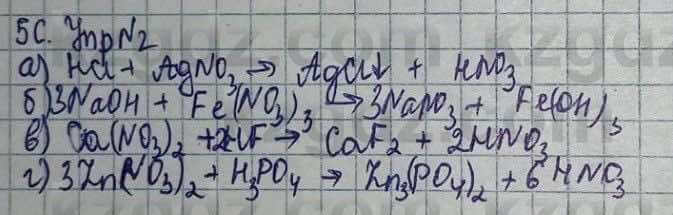 5С. Упр№2
а) HCl + AgNO₃ → AgCl↓ + HNO₃
б) 3NaOH + Fe(NO₃)₃ → 3NaNO₃ + Fe(OH)₃
в) Ca(NO₃)₂ + 2HF → CaF₂ + 2HNO₃
г) 3Zn(NO₃)₂ + H₃PO₄ → Zn₃(PO₄)₂ + 6HNO₃